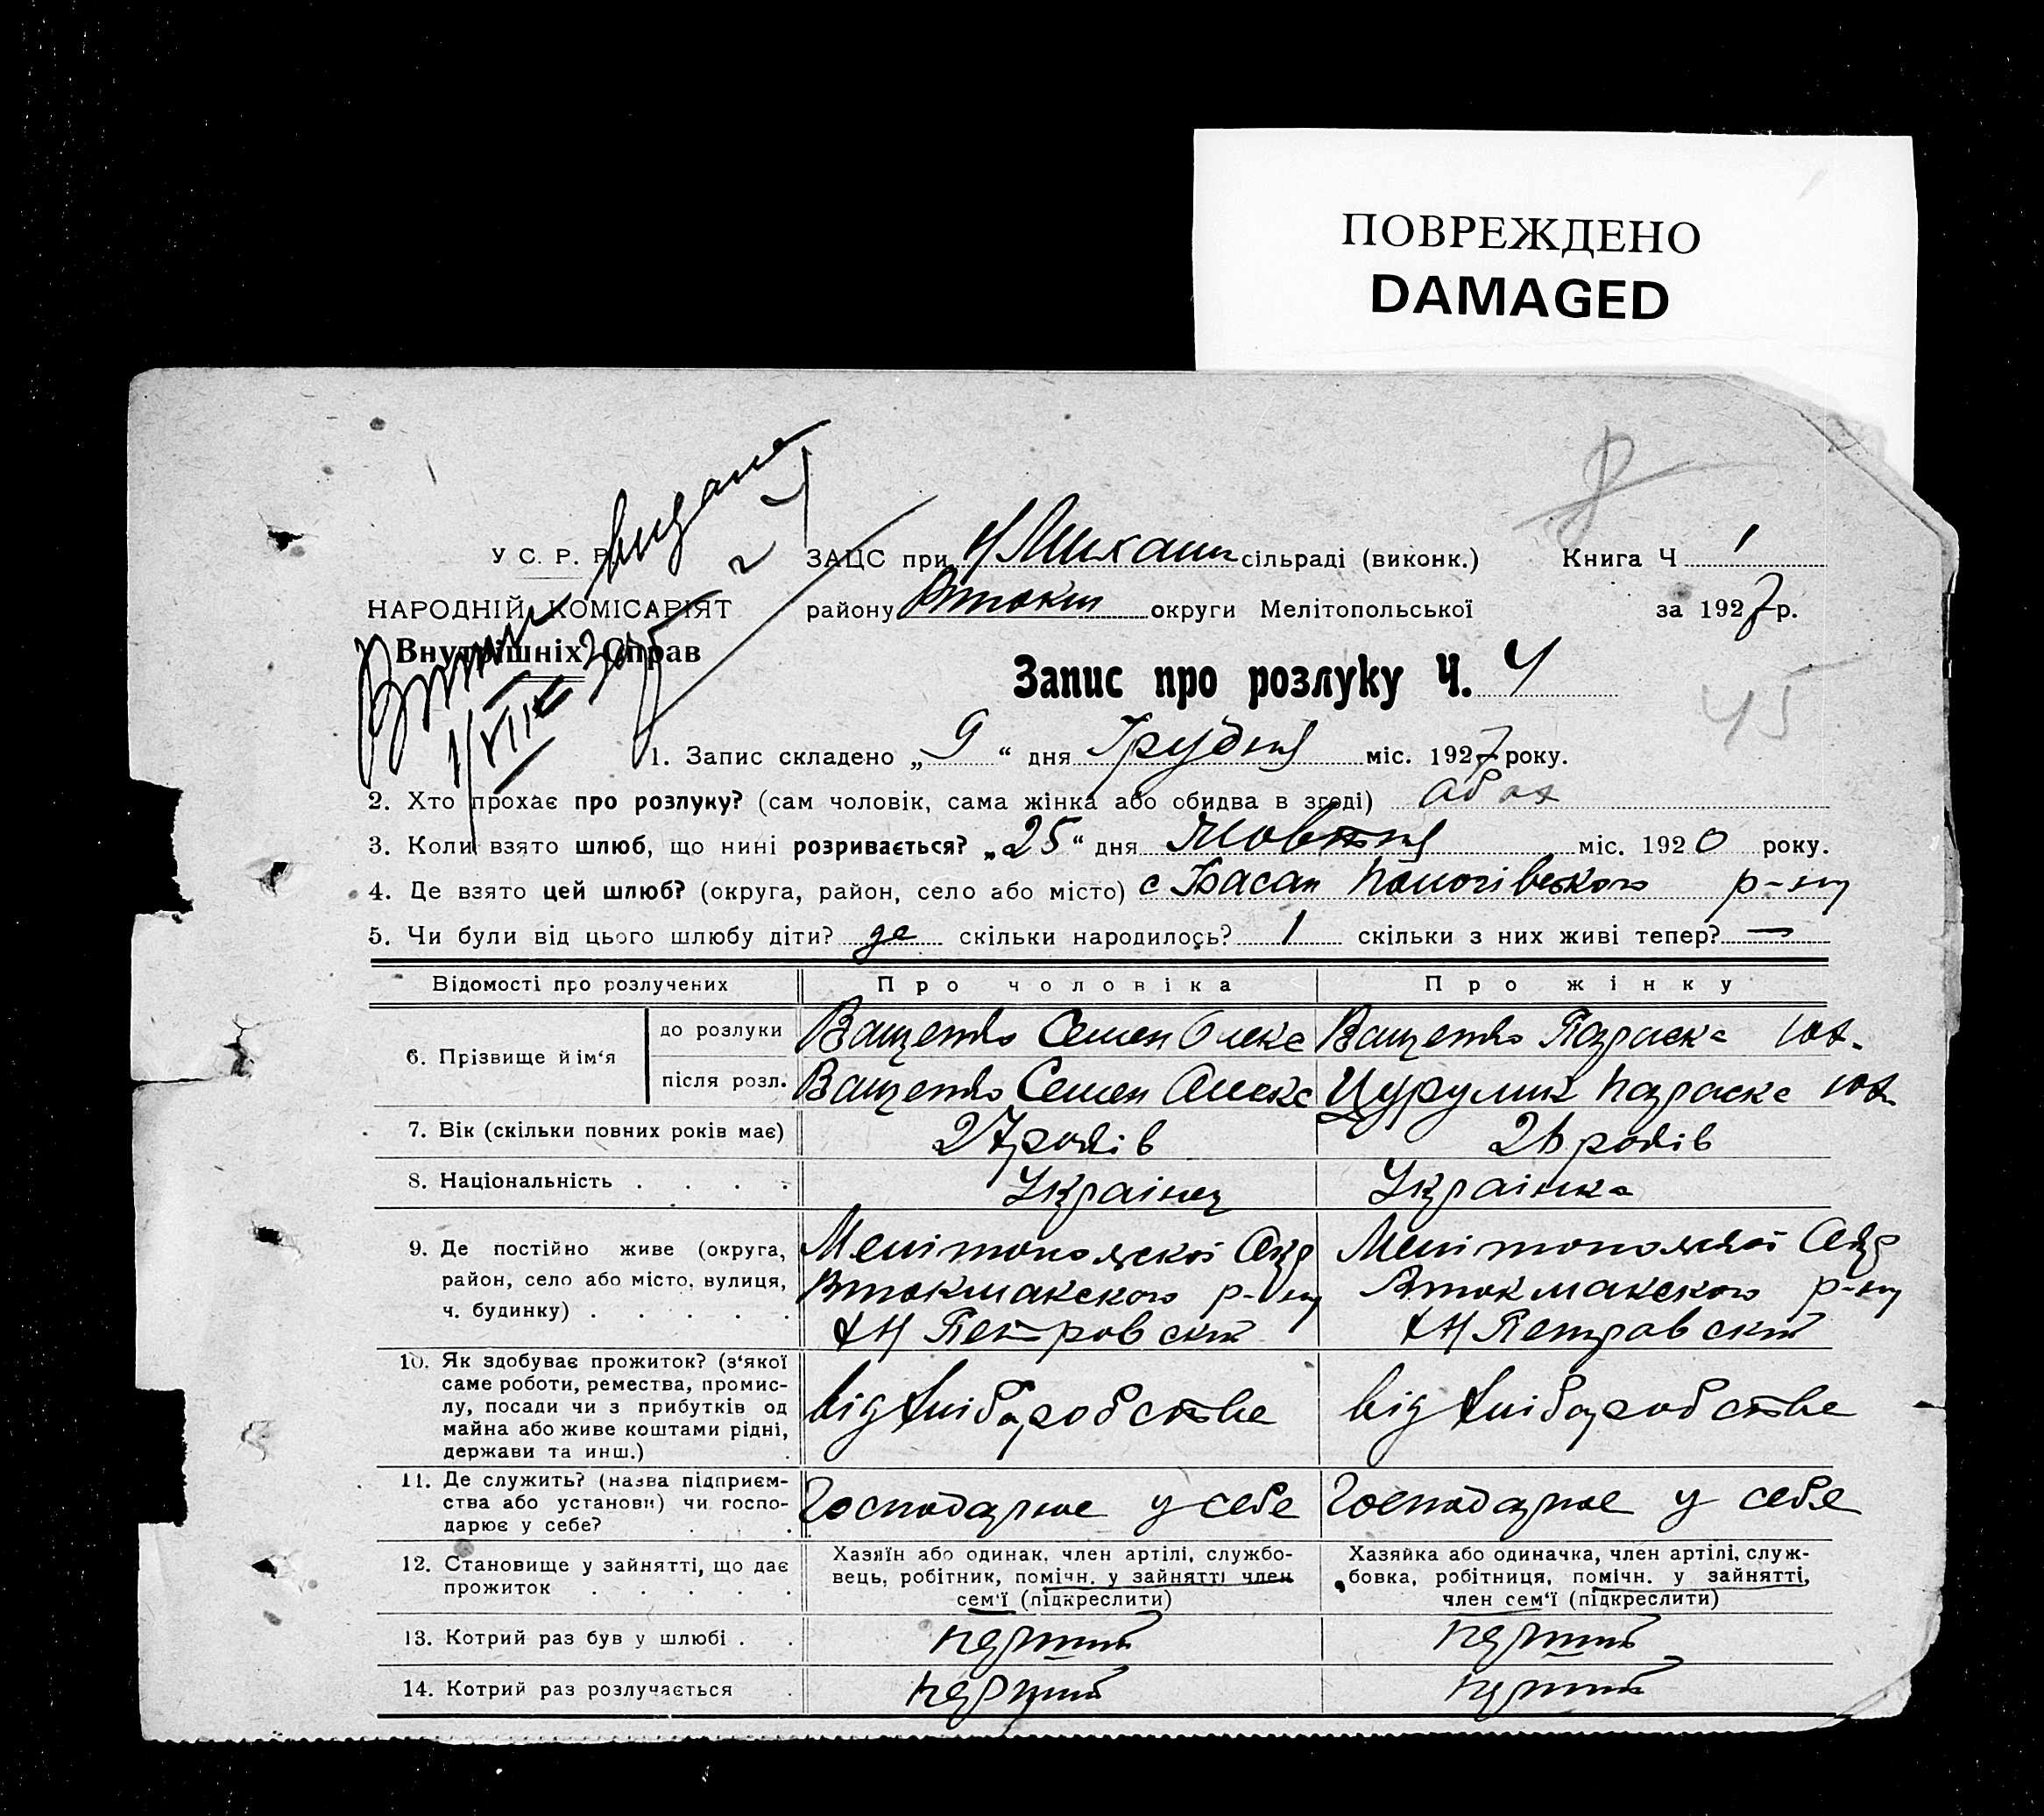 ПОВРЕЖДЕНО
DAMAGED
У С. Р. Р.
НАРОДНІЙ КОМІСАРІЯТ
Внутрішніх Справ
видане
ЗАЦС при сільраді (виконк.)
району Втокм округи Мелітопольської
Книга Ч 1
за 1927 р.
Запис про розлуку Ч. 4
45
1. Запис складено „9“ дня Грудня міс. 1927 року.
2. Хто прохає про розлуку? (сам чоловік, сама жінка або обидва в згоді)
3. Коли взято шлюб, що нині розривається? „25“ дня Жовтня міс. 1920 року.
4. Де взято цей шлюб? (округа, район, село або місто) с Басан Пологівського р-ну
5. Чи були від цього шлюбу діти? да скільки народилось? 1 скільки з них живі тепер? —
Відомості про розлучених Про чоловіка Про жінку
6. Прізвище й ім‘я
до розлуки Ващенко Семен Олекс Ващенко Параска
після розл. Ващенко Семен Олекс Цурулик Параска
7. Вік (скільки повних років має) 27 років 26 років
8. Національність . . . . Українец Українка
9. Де постійно живе (округа, район, село або місто, вулиця, ч. будинку) . . . . .
Мелітопольскої Окр
Втокмакского р-ну
Петровский
Мелітопольскої Окр
Втокмакского р-ну
Петровский
10. Як здобуває прожиток? (з‘якої саме роботи, ремества, промислу, посади чи з прибутків од майна або живе коштами рідні, держави та инш.)
від хліборобства
від хліборобства
11. Де служить? (назва підприємства або установи) чи господарює у себе?
Господарює у себе
Господарює у себе
12. Становище у зайнятті, що дає прожиток . . . . .
Хазяїн або одинак, член артілі, службовець, робітник, помічн. у зайнятті член сем‘ї (підкреслити)
Хазяйка або одиначка, член артілі, службовка, робітниця, помічн. у зайнятті, член сем‘ї (підкреслити)
13. Котрий раз був у шлюбі . . перший перший
14. Котрий раз розлучається . перший перший